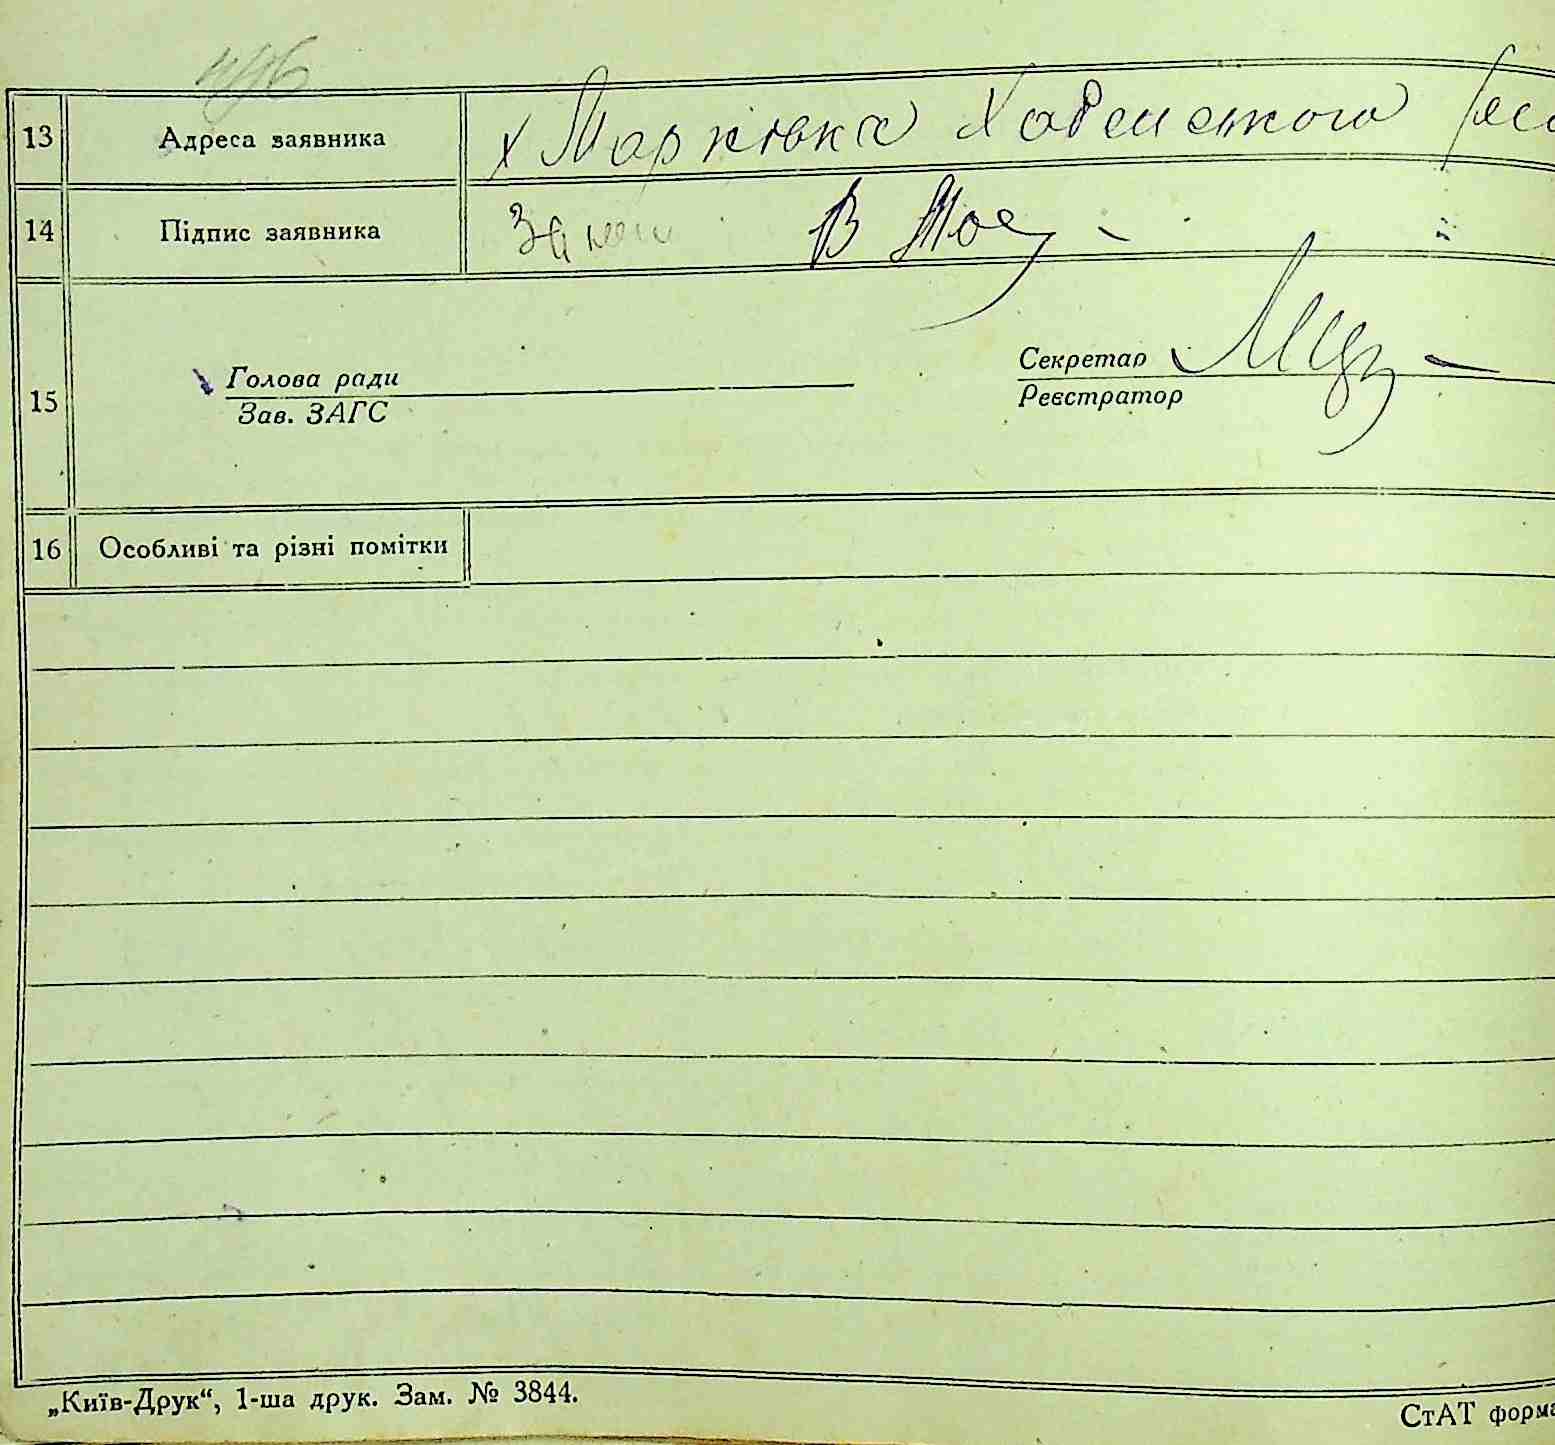 13 Адреса заявника х Марківка
14 Підпис заявника В
15
Голова ради
Зав. ЗАГС
Секретар
Реєстратор
16 Особливі та різні помітки
„Київ-Друк“, 1-ша друк. Зам. № 3844.
СтАТ форма